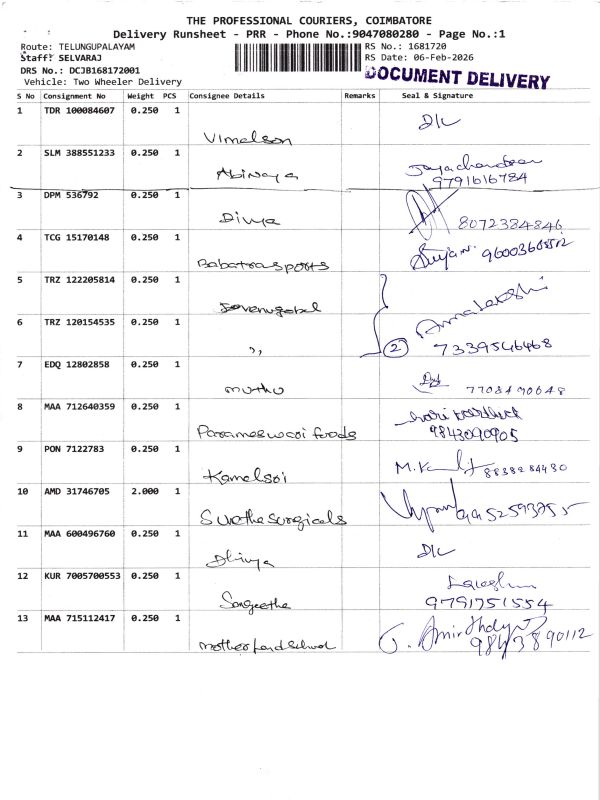 THE PROFESSIONAL COURIERS, COIMBATORE
Delivery Runsheet - PRR - Phone No.:9047080280 - Page No.:1
Route: TELUNGUPALAYAM RS No.: 1681720
Staff: SELVARAJ RS Date: 06-Feb-2026
DRS No.: DCJB168172001
DOCUMENT DELIVERY
Vehicle: Two Wheeler Delivery
S No Consignment No Weight PCS Consignee Details Remarks Seal & Signature
1 TDR 100084607 0.250 1 Vimalson D/L
2 SLM 388551233 0.250 1 Abinaya Jayachandran
9791616784
3 DPM 536792 0.250 1 Divya 8072384846
4 TCG 15170148 0.250 1 Babatrasports
5 TRZ 122205814 0.250 1
6 TRZ 120154535 0.250 1 ,, 2 7339546468
7 EDQ 12802858 0.250 1 muthu
8 MAA 712640359 0.250 1 Parameswari foods
9843090905
9 PON 7122783 0.250 1 Kamalsri
10 AMD 31746705 2.000 1
11 MAA 600496760 0.250 1 Dhivya D/L
12 KUR 7005700553 0.250 1 Sangeetha
9791751554
13 MAA 715112417 0.250 1 motherlandschool